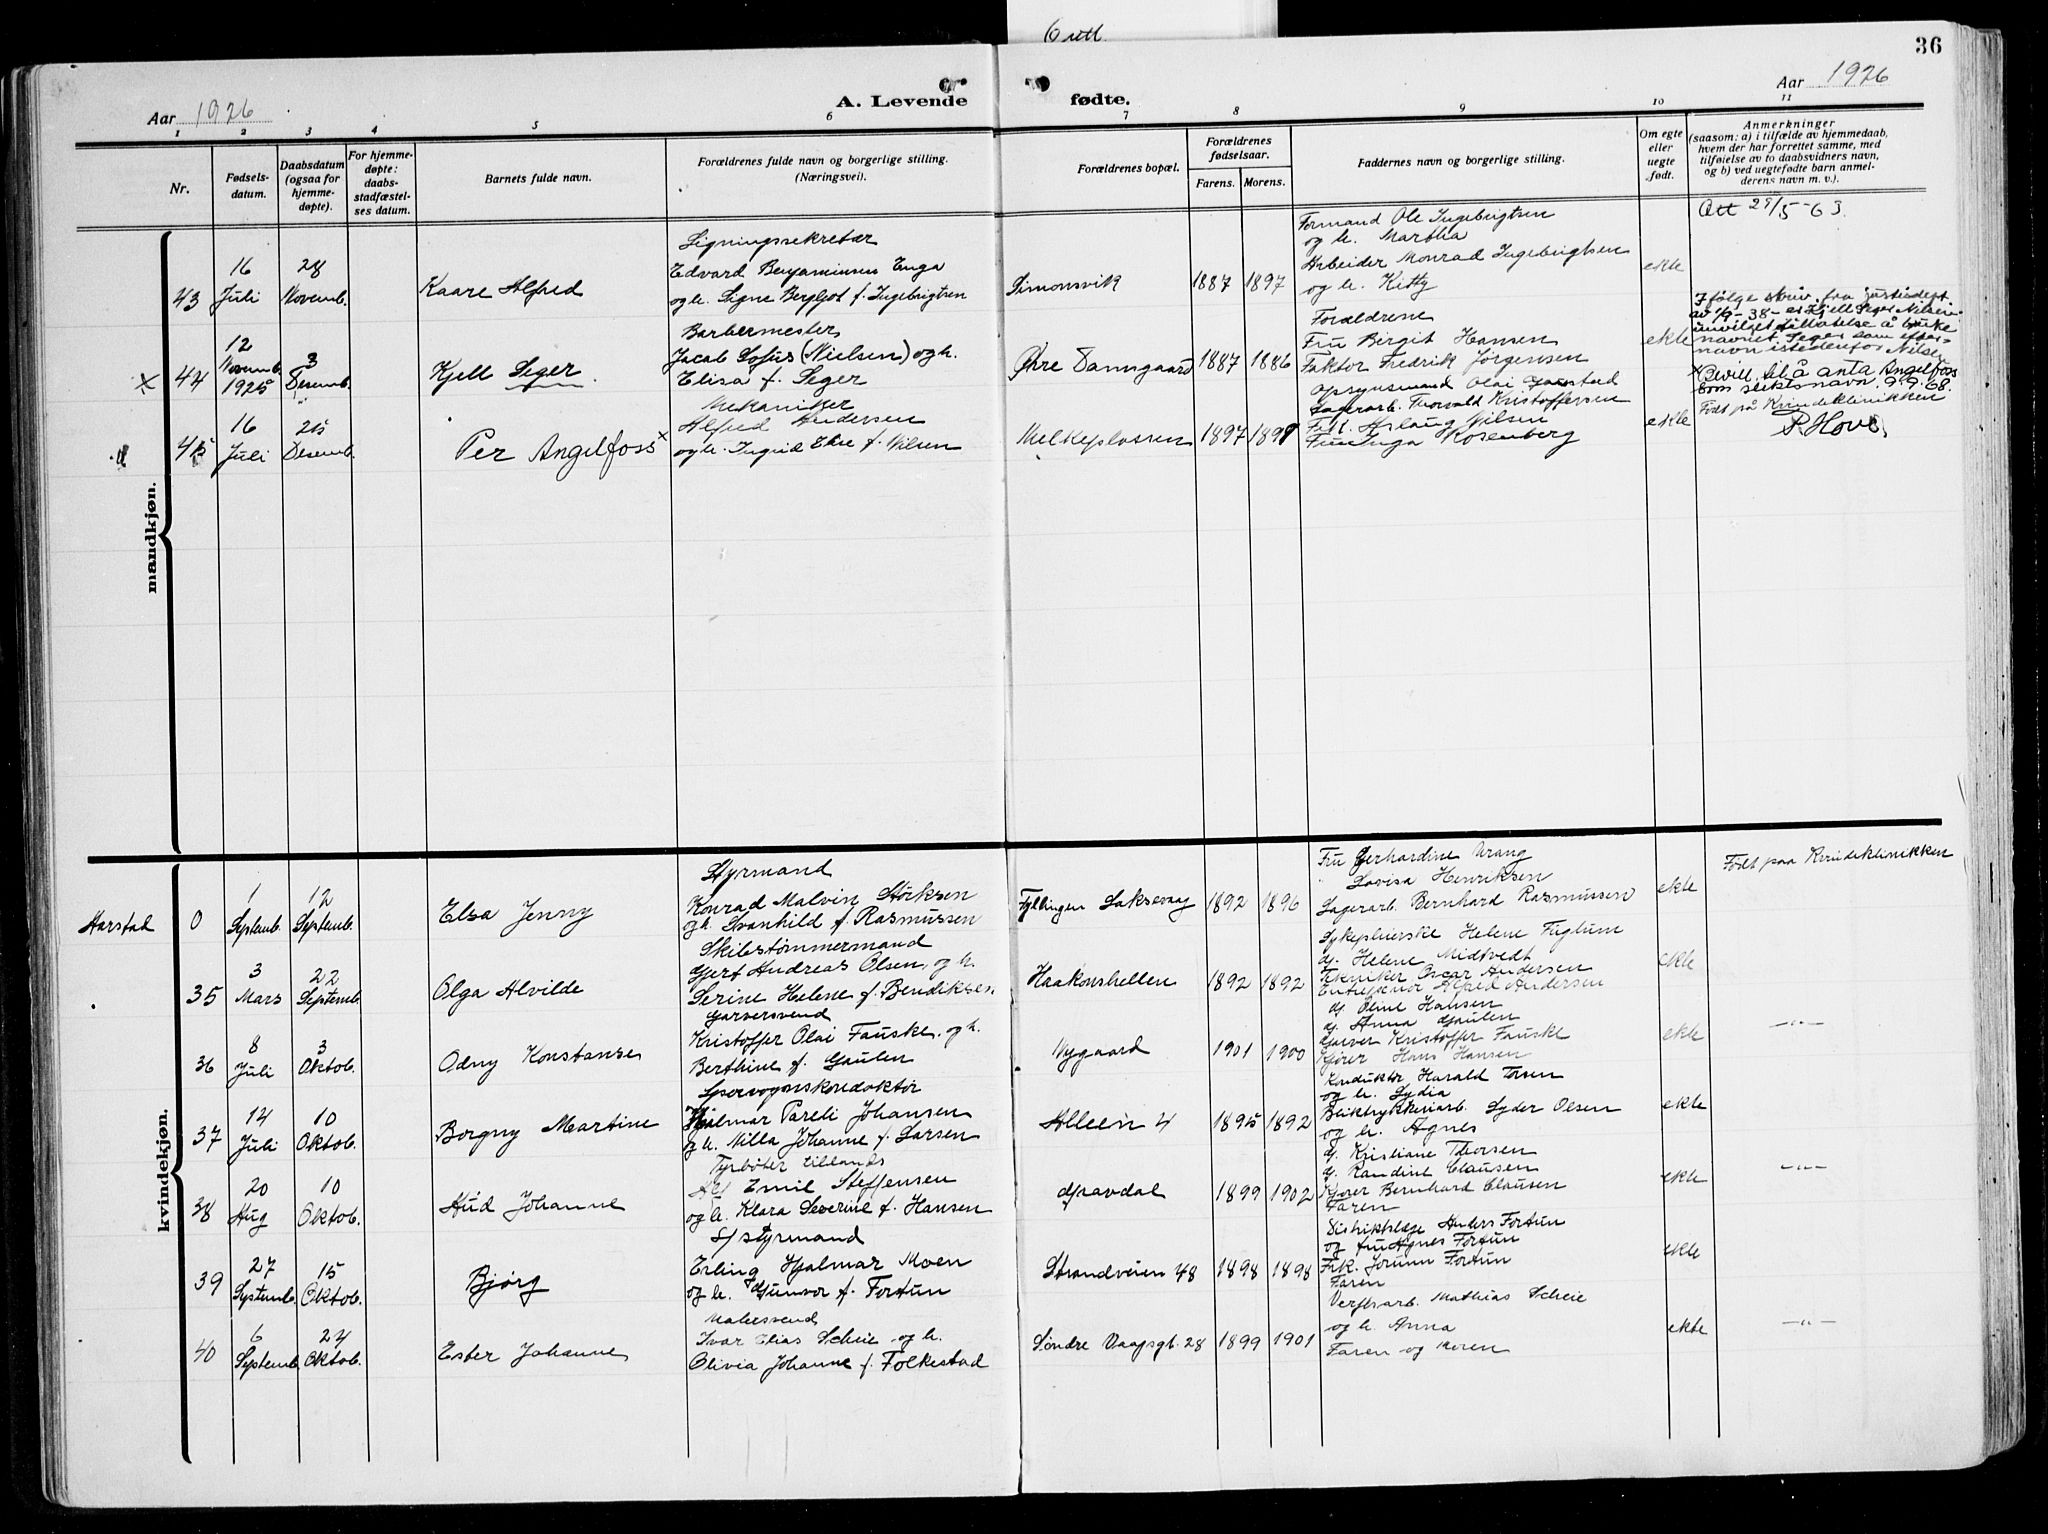 36
Aar 1926
A. Levende
fødte.
Aar 1926
1 2 3 4 5 6 7 8 9 10 11
Nr.
Fødsels-
datum.
Daabsdatum
(ogsaa for
hjemme-
døpte).
For hjemme-
døpte:
daabs-
stadfæstel-
ses datum.
Barnets fulde navn.
Forældrenes fulde navn og borgerlige stilling.
(Næringsvei).
Forældrenes bopæl.
Forældrenes
fødselsaar.
Farens. Morens.
Faddernes navn og borgerlige stilling.
Om egte
eller
uegte
født.
Anmerkninger
(saasom: a) i tilfælde av hjemmedaab,
hvem der har forrettet samme, med
tilføielse av to daabsvidners navn,
og b) ved uegtefødte barn anmel-
derens navn m. v.).
mandkjøn.
43
16
Juli
28
Novemb.
Kaare Alfred
Ligningssekretær
Edvard Benjaminsen Enga
og h. Signe Bergljot f. Ingebrigtsen
Simonsvik
1887 1897
Formand Ole Ingebrigtsen
og h. Martha
Arbeider Monrad Ingebrigtsen
og h. Kitty
Forældrene
ekte
Att 29/5-63
x 44
12
Novemb.
1925
3
Desemb.
Kjell Seger
Barbermester
Jacob Sofus (Nielsen) og h.
Elisa f. Seger
Øvre Damsgaard
1887 1886
Fru Birgit Hansen
Faktor Fredrik Jørgensen
Opsynsmand Olai
ekte
Ifølge skriv. fra justisdept.
av 1/9-38- er Kjell Seger Nilsen
innvilget tillatelse å bruke
navnet Seger som efter-
navn istedenfor Nilsen
45
16
Juli
25
Desemb.
Per Angelfoss x
Mekaniker
Alfred Andersen
og h. Ingrid Elise f. Nilsen
Melkeplassen
1897 1897
Lagerarb. Thorvald Kristoffersen
Frk. Aslaug Nilsen
Fru Inga Rosenberg
ekte
x Bevill. til å anta Angelfoss
som slektsnavn 9.9.68.
Født på Kvindeklinikken
P. Hove.
kvindekjøn.
Aarstad
0
1
Septemb.
12
Septemb.
Elsa Jenny
Styrmand
Konrad Malvin Størksen
og h. Svanhild f. Rasmussen
Fyllingen Laksevaag
1892 1896
Fru Gerhardine Vrang
" Lovisa Henriksen
Lagerarb. Bernhard Rasmussen
ekte
Født paa Kvindeklinikken
35
3
Mars
22
Septemb.
Olga Alvilde
Skibstømmermand
Gjert Andreas Olsen og h.
Serine Helene f. Bendiksen
Haakonshellen
1892 1892
Sykepleierske Helene Fuglum
Gj. Helene Midtvedt
Tekniker Oscar Andersen
Entreprenør Alfred Andersen
ekte
36
8
Juli
3
Oktob.
Odny Konstanse
Garversvend
Kristoffer Olai Fauske og h.
Berthine f. Gaulen
Nygaard
1901 1900
Gj. Oline Hansen
Gj. Anna Gaulen
Garver Kristoffer Fauske
Kjører Hans Hansen
ekte
—"—
37
14
Juli
10
Oktob.
Borgny Martine
Sporvognskonduktør
Hjalmar Pareli Johansen
og h. Milla Johanne f. Larsen
Alleèn 4
1895 1892
Konduktør Harald Torsen
og h. Lydia
Bliktrykkeriarb. Lyder Olsen
og h. Agnes
ekte
38
20
Aug
10
Oktob.
Aud Johanne
Fyrbøter tillands
Alf Emil Steffensen
og h. Klara Severine f. Hansen
Gravdal
1899 1902
Gj. Kristiane Thorsen
Gj. Randine Clausen
Kjører Bernhard Clausen
Faren
ekte
—"—
39
27
Septemb.
15
Oktob.
Bjørg
S/styrmand
Erling Hjalmar Moen
og h. Gunvor f. Fortun
Strandveien 48
1898 1898
Distriktslæge Anders Fortun
og fru Agnes Fortun
Frk. Jorunn Fortun
Faren
ekte
40
6
Septemb.
24
Oktob.
Ester Johanne
Malersvend
Ivar Elias Scheie og h.
Olivia Johanne f. Folkestad
Søndre Vaagsgt. 28
1899 1901
Verftsarb. Mathias Scheie
og h. Anna
Faren og Moren
ekte
—"—